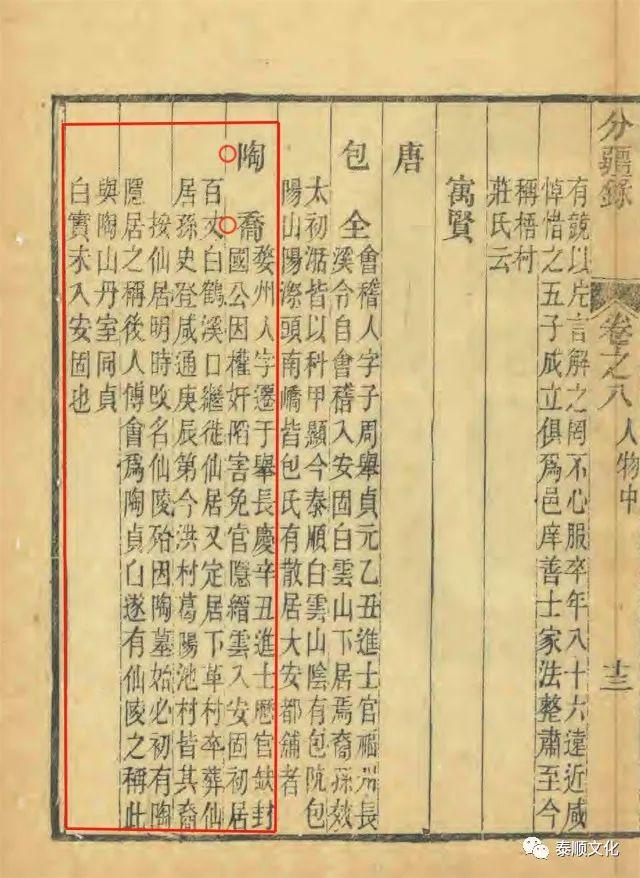 分疆録
卷之八
人物中
十三
有競以片言解之罔不心服卒年八十六遠近咸
悼惜之五子成立俱爲邑庠善士家法整肅至今
稱梧村
莊氏云
寓賢
唐
包全
會稽人字子周舉貞元乙丑進士官福州長
溪令自會稽入安固白雲山下居焉裔孫效
太初湉皆以科甲顯今泰順白雲山陰有包阬包
陽山陽漈頭南嶠皆包氏有散居大安都舖者
陶裔
婺州人字遷于舉長慶辛丑進士歷官缺封
國公因權奸陷害免官隱縉雲入安固初居
百丈白鶴溪口繼徙仙居又定居下革村卒葬仙
居孫史登咸通庚辰第今洪村葛陽池村皆其裔
按仙居明時改名仙陵殆因陶墓始必初有陶
隱居之稱後人傅會爲陶貞白遂有仙陵之稱此
與陶山丹室同貞
白實未入安固也
泰顺文化